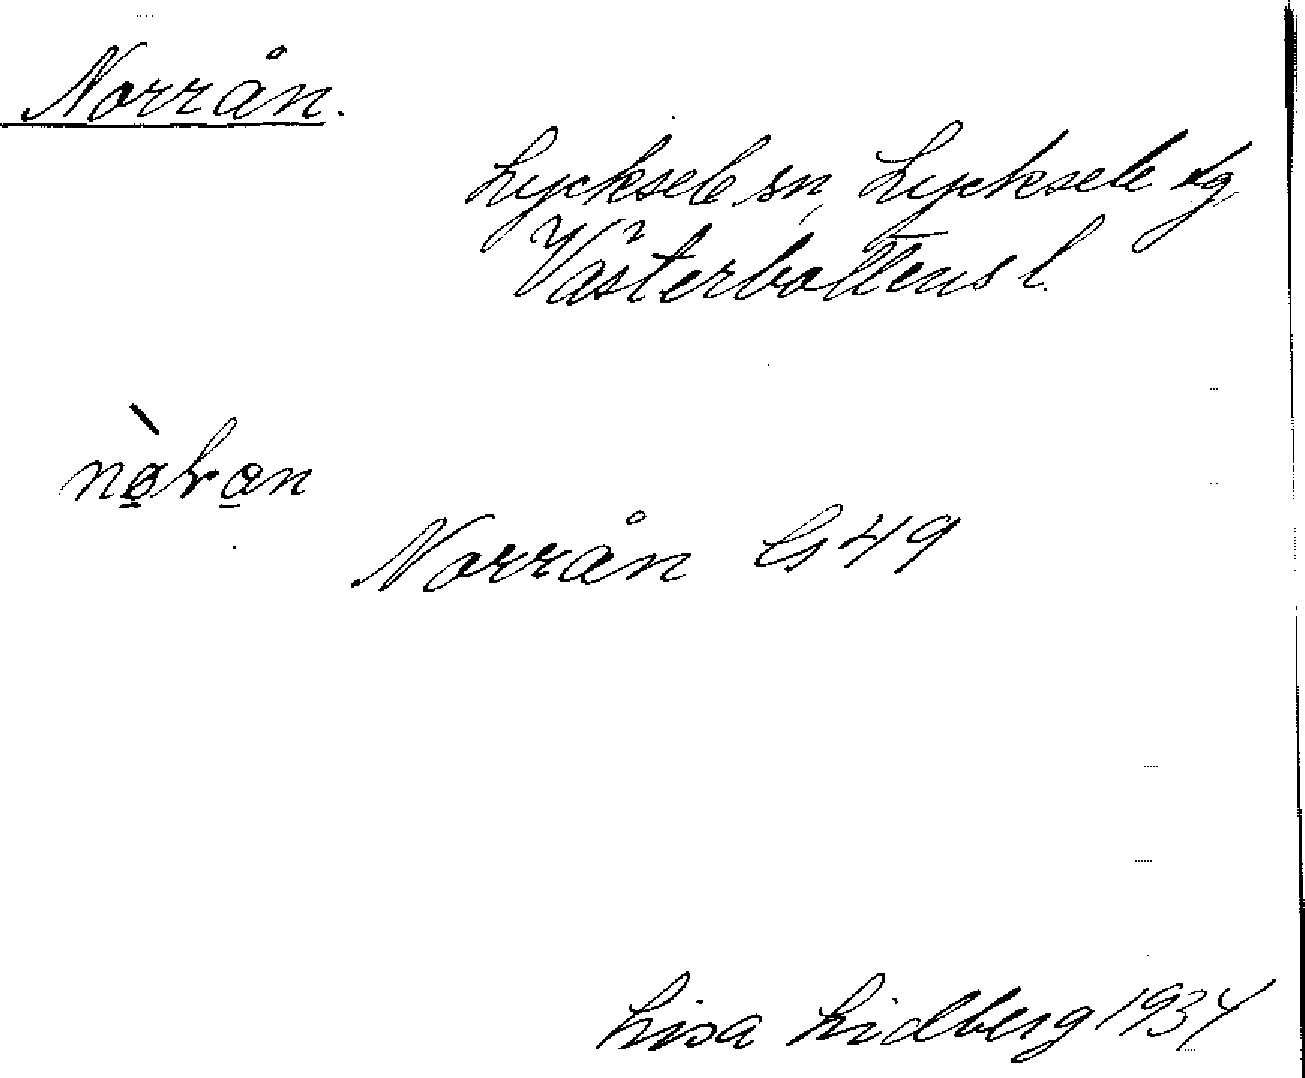 Norrån.
Lycksele sn, Lycksele lg,
Västerbottens l.
Norrån G49
Lisa Lidberg 1934